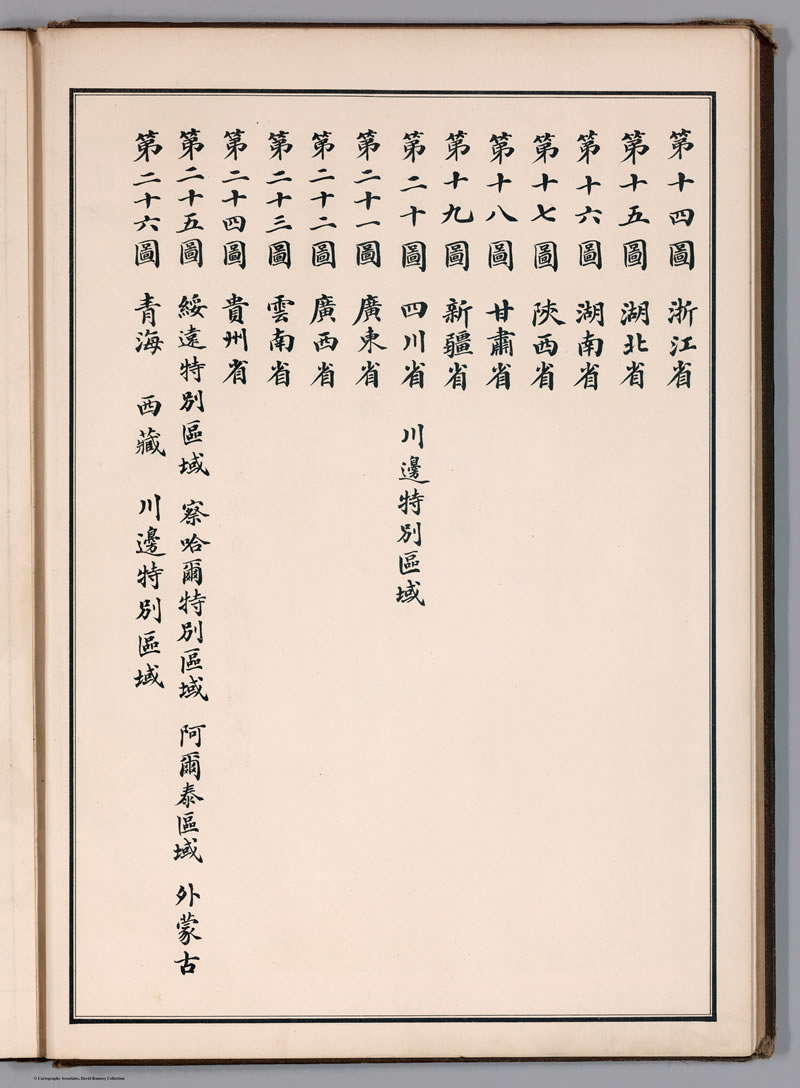 第十四圖 浙江省
第十五圖 湖北省
第十六圖 湖南省
第十七圖 陝西省
第十八圖 甘肅省
第十九圖 新疆省
第二十圖 四川省 川邊特別區域
第二十一圖 廣東省
第二十二圖 廣西省
第二十三圖 雲南省
第二十四圖 貴州省
第二十五圖 綏遠特別區域 察哈爾特別區域 阿爾泰區域 外蒙古
第二十六圖 青海 西藏 川邊特別區域
© Cartography Associates, David Rumsey Collection